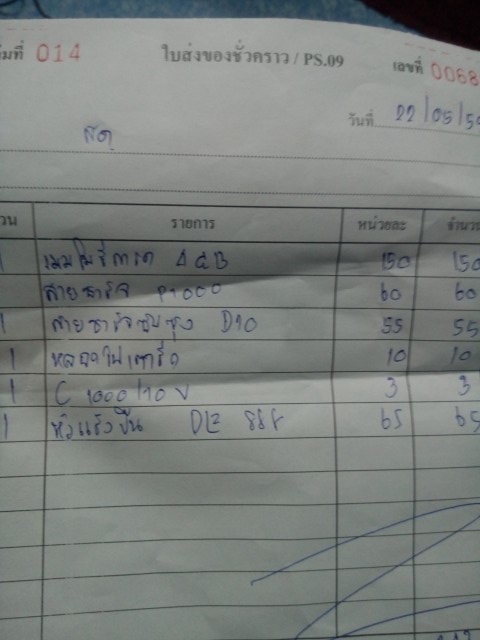 เล่มที่ 014 ใบส่งของชั่วคราว / PS.09 เลขที่ 0068
วันที่ 22/05/5
สด
รายการ หน่วยละ จำนวน
1 เมมโมรี่การด 4GB 150 150
สายชาร์จ P1000 60 60
1 สายชาร์จซัมซุง D10 55 55
1 10 10
1 C 1000/10 V 3 3
1 หัวแร้งปืน 65 65